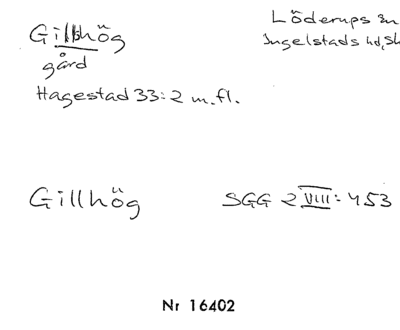 Gillhög
Löderups sn
Ingelstads hd, Sk
gård
Hagestad 33:2 m.fl.
Gillhög
SGG 2 VIII: 453
Nr 16402